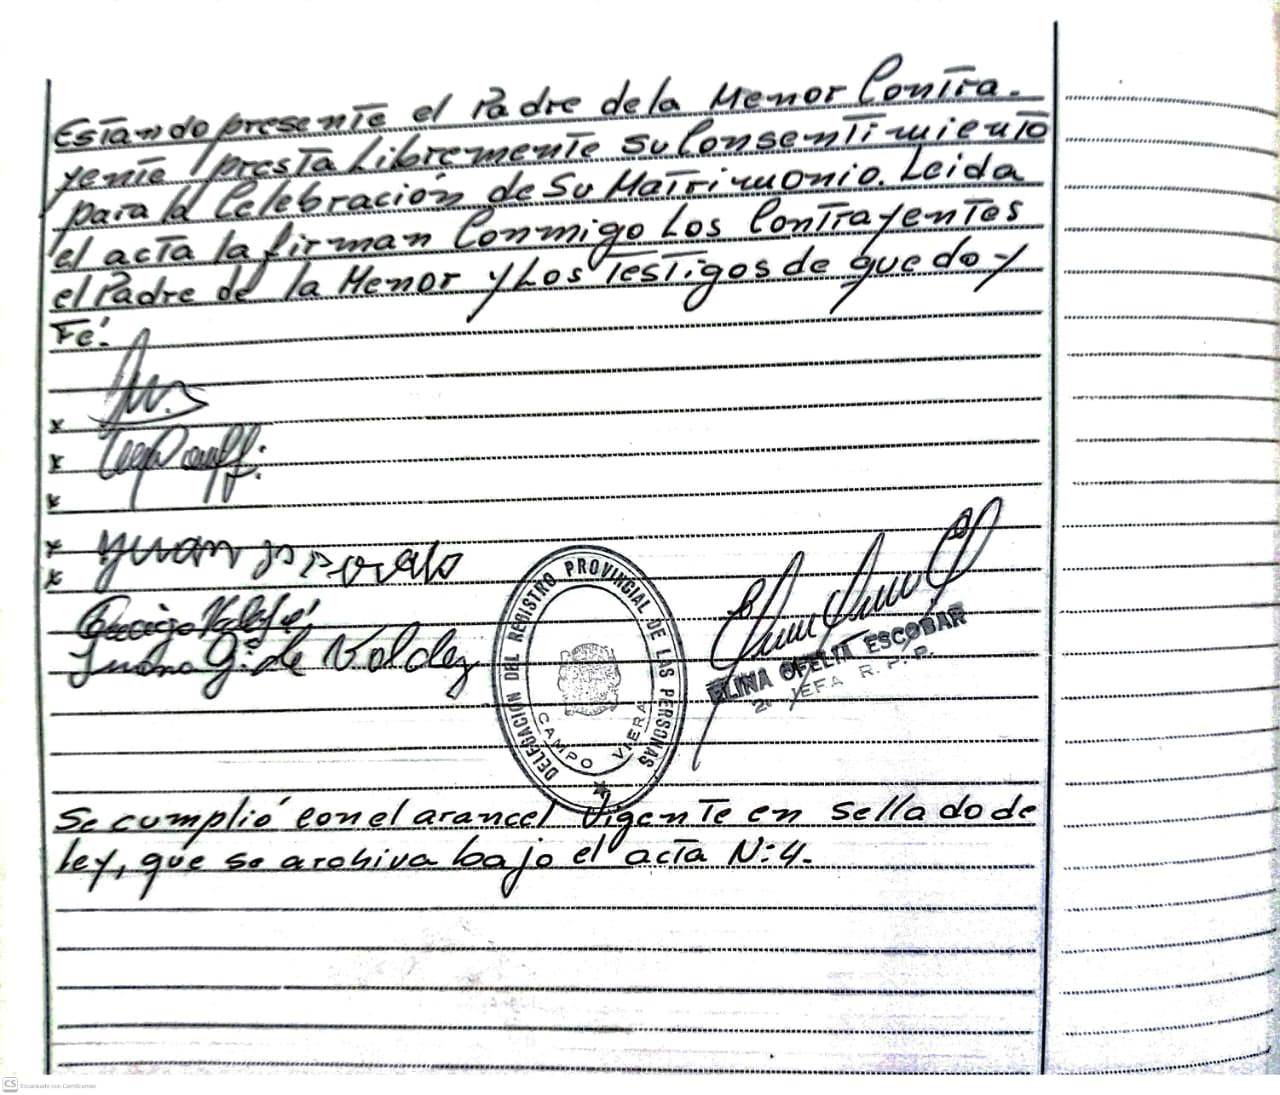 Estando presente el Padre de la Menor Contra-
yente presta Libremente su Consentimiento
para la Celebración de Su Matrimonio. Leida
el acta la firman Conmigo Los Contrayentes
el Padre de la Menor y Los Testigos de que doy
Fé.
x
x
x
x Yuan
x
Juana G. de Valdez
DELEGACION DEL REGISTRO PROVINCIAL DE LAS PERSONAS
CAMPO VIERA
ELINA OFELIA ESCOBAR
2ª JEFA R. P. P.
Se cumplió con el arancel Vigente en sellado de
Ley, que se archiva bajo el acta N:4.
CS Escaneado con CamScanner